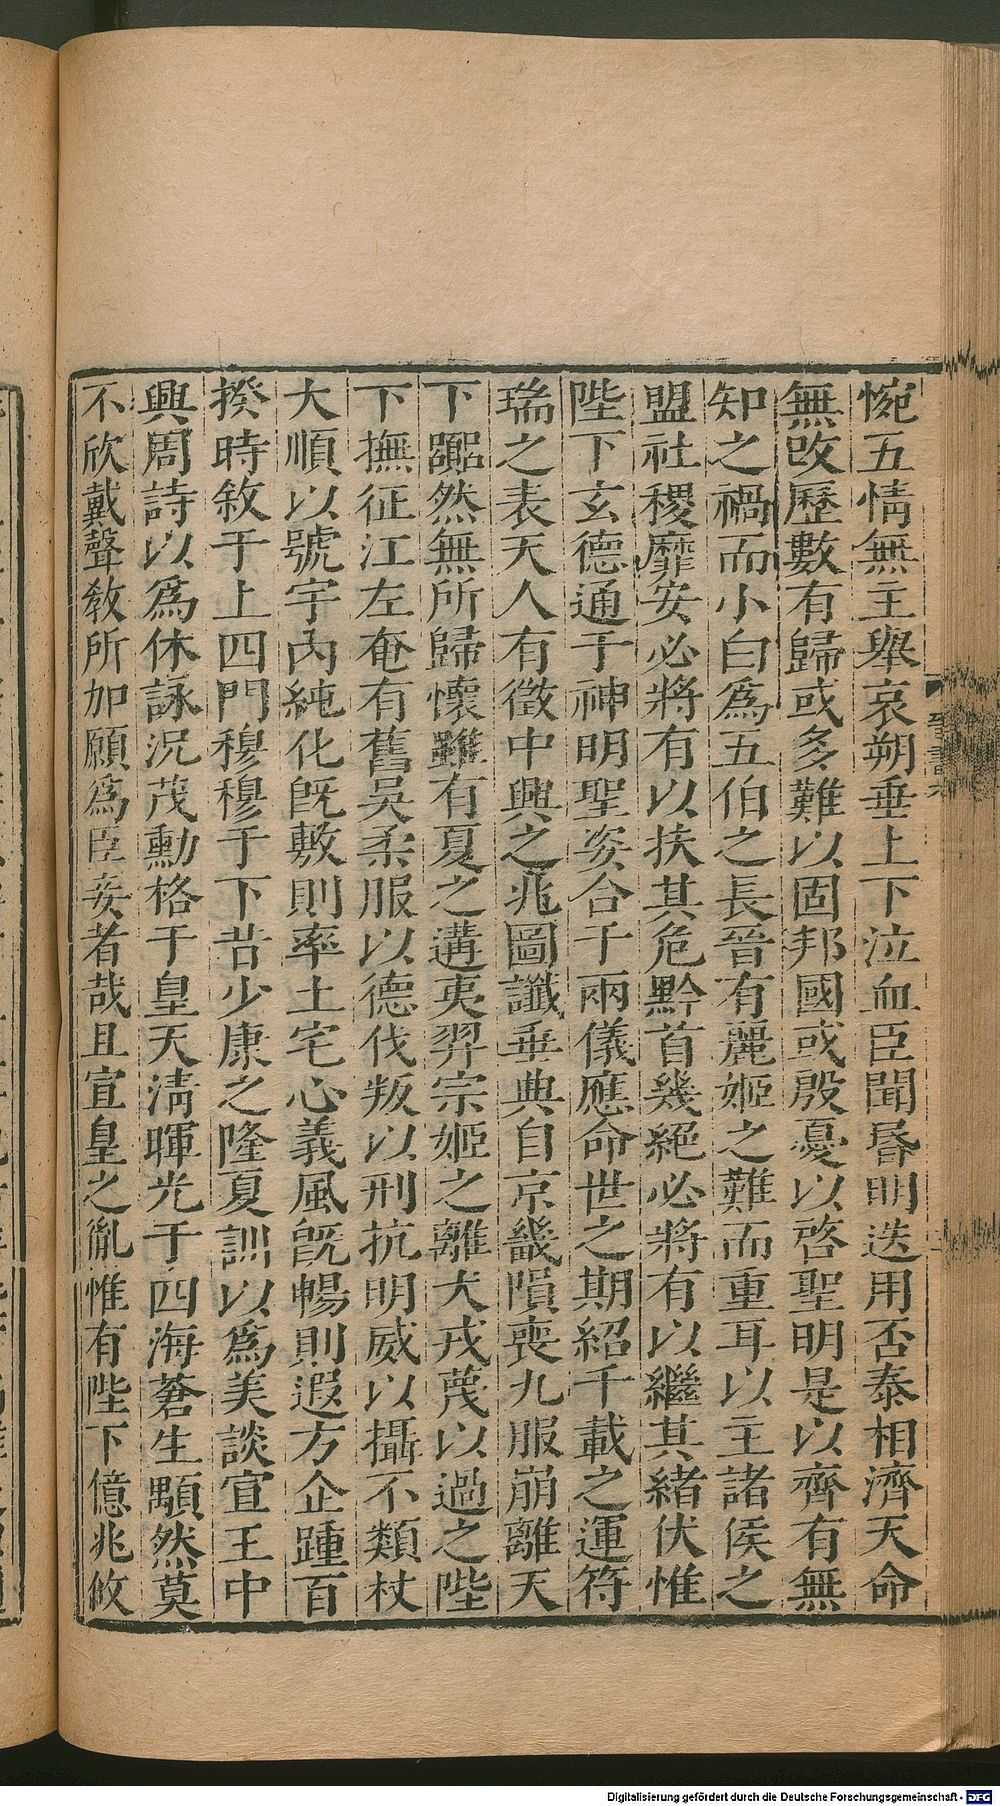 惋五情無主舉哀朔垂上下泣血臣聞昏明迭用否泰相濟天命
無改歷數有歸或多難以固邦國或殷憂以啓聖明是以齊有無
知之禍而小白爲五伯之長晉有麗姬之難而重耳以主諸侯之
盟社稷靡安必將有以扶其危黔首幾絕必將有以繼其緖伏惟
陛下玄德通于神明聖姿合于兩儀應命世之期紹千載之運符
瑞之表天人有徵中興之兆圖讖垂典自京畿隕喪九服崩離天
下嚻然無所歸懷雖有夏之遘夷羿宗姬之離犬戎蔑以過之陛
下撫征江左奄有舊吳柔服以德伐叛以刑抗明威以攝不類杖
大順以號宇內純化旣敷則率土宅心義風旣暢則遐方企踵百
揆時敘于上四門穆穆于下昔少康之隆夏訓以爲美談宣王中
興周詩以爲休詠況茂勳格于皇天淸暉光于四海蒼生顒然莫
不欣戴聲敎所加願爲臣妾者哉且宣皇之胤惟有陛下億兆攸
晉書六
Digitalisierung gefördert durch die Deutsche Forschungsgemeinschaft - DFG